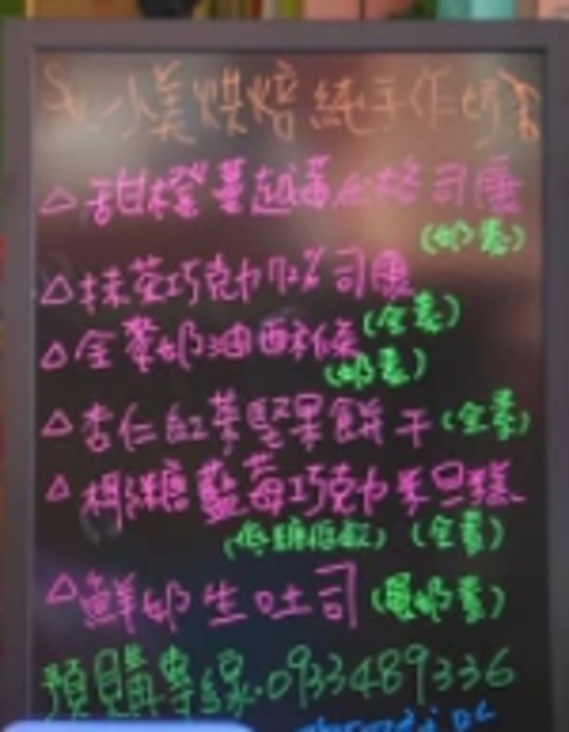 小美烘焙 純手作奶素
△甜橙蔓越莓優格司康
(奶素)
△抹茶巧克力72%司康
(全素)
△全麥奶油酥條
(奶素)
△杏仁紅藜堅果餅干(全素)
△椰糖藍莓巧克力米蛋糕
(低糖低敏)(全素)
△鮮奶生吐司(蛋奶素)
預購專線:0933489336